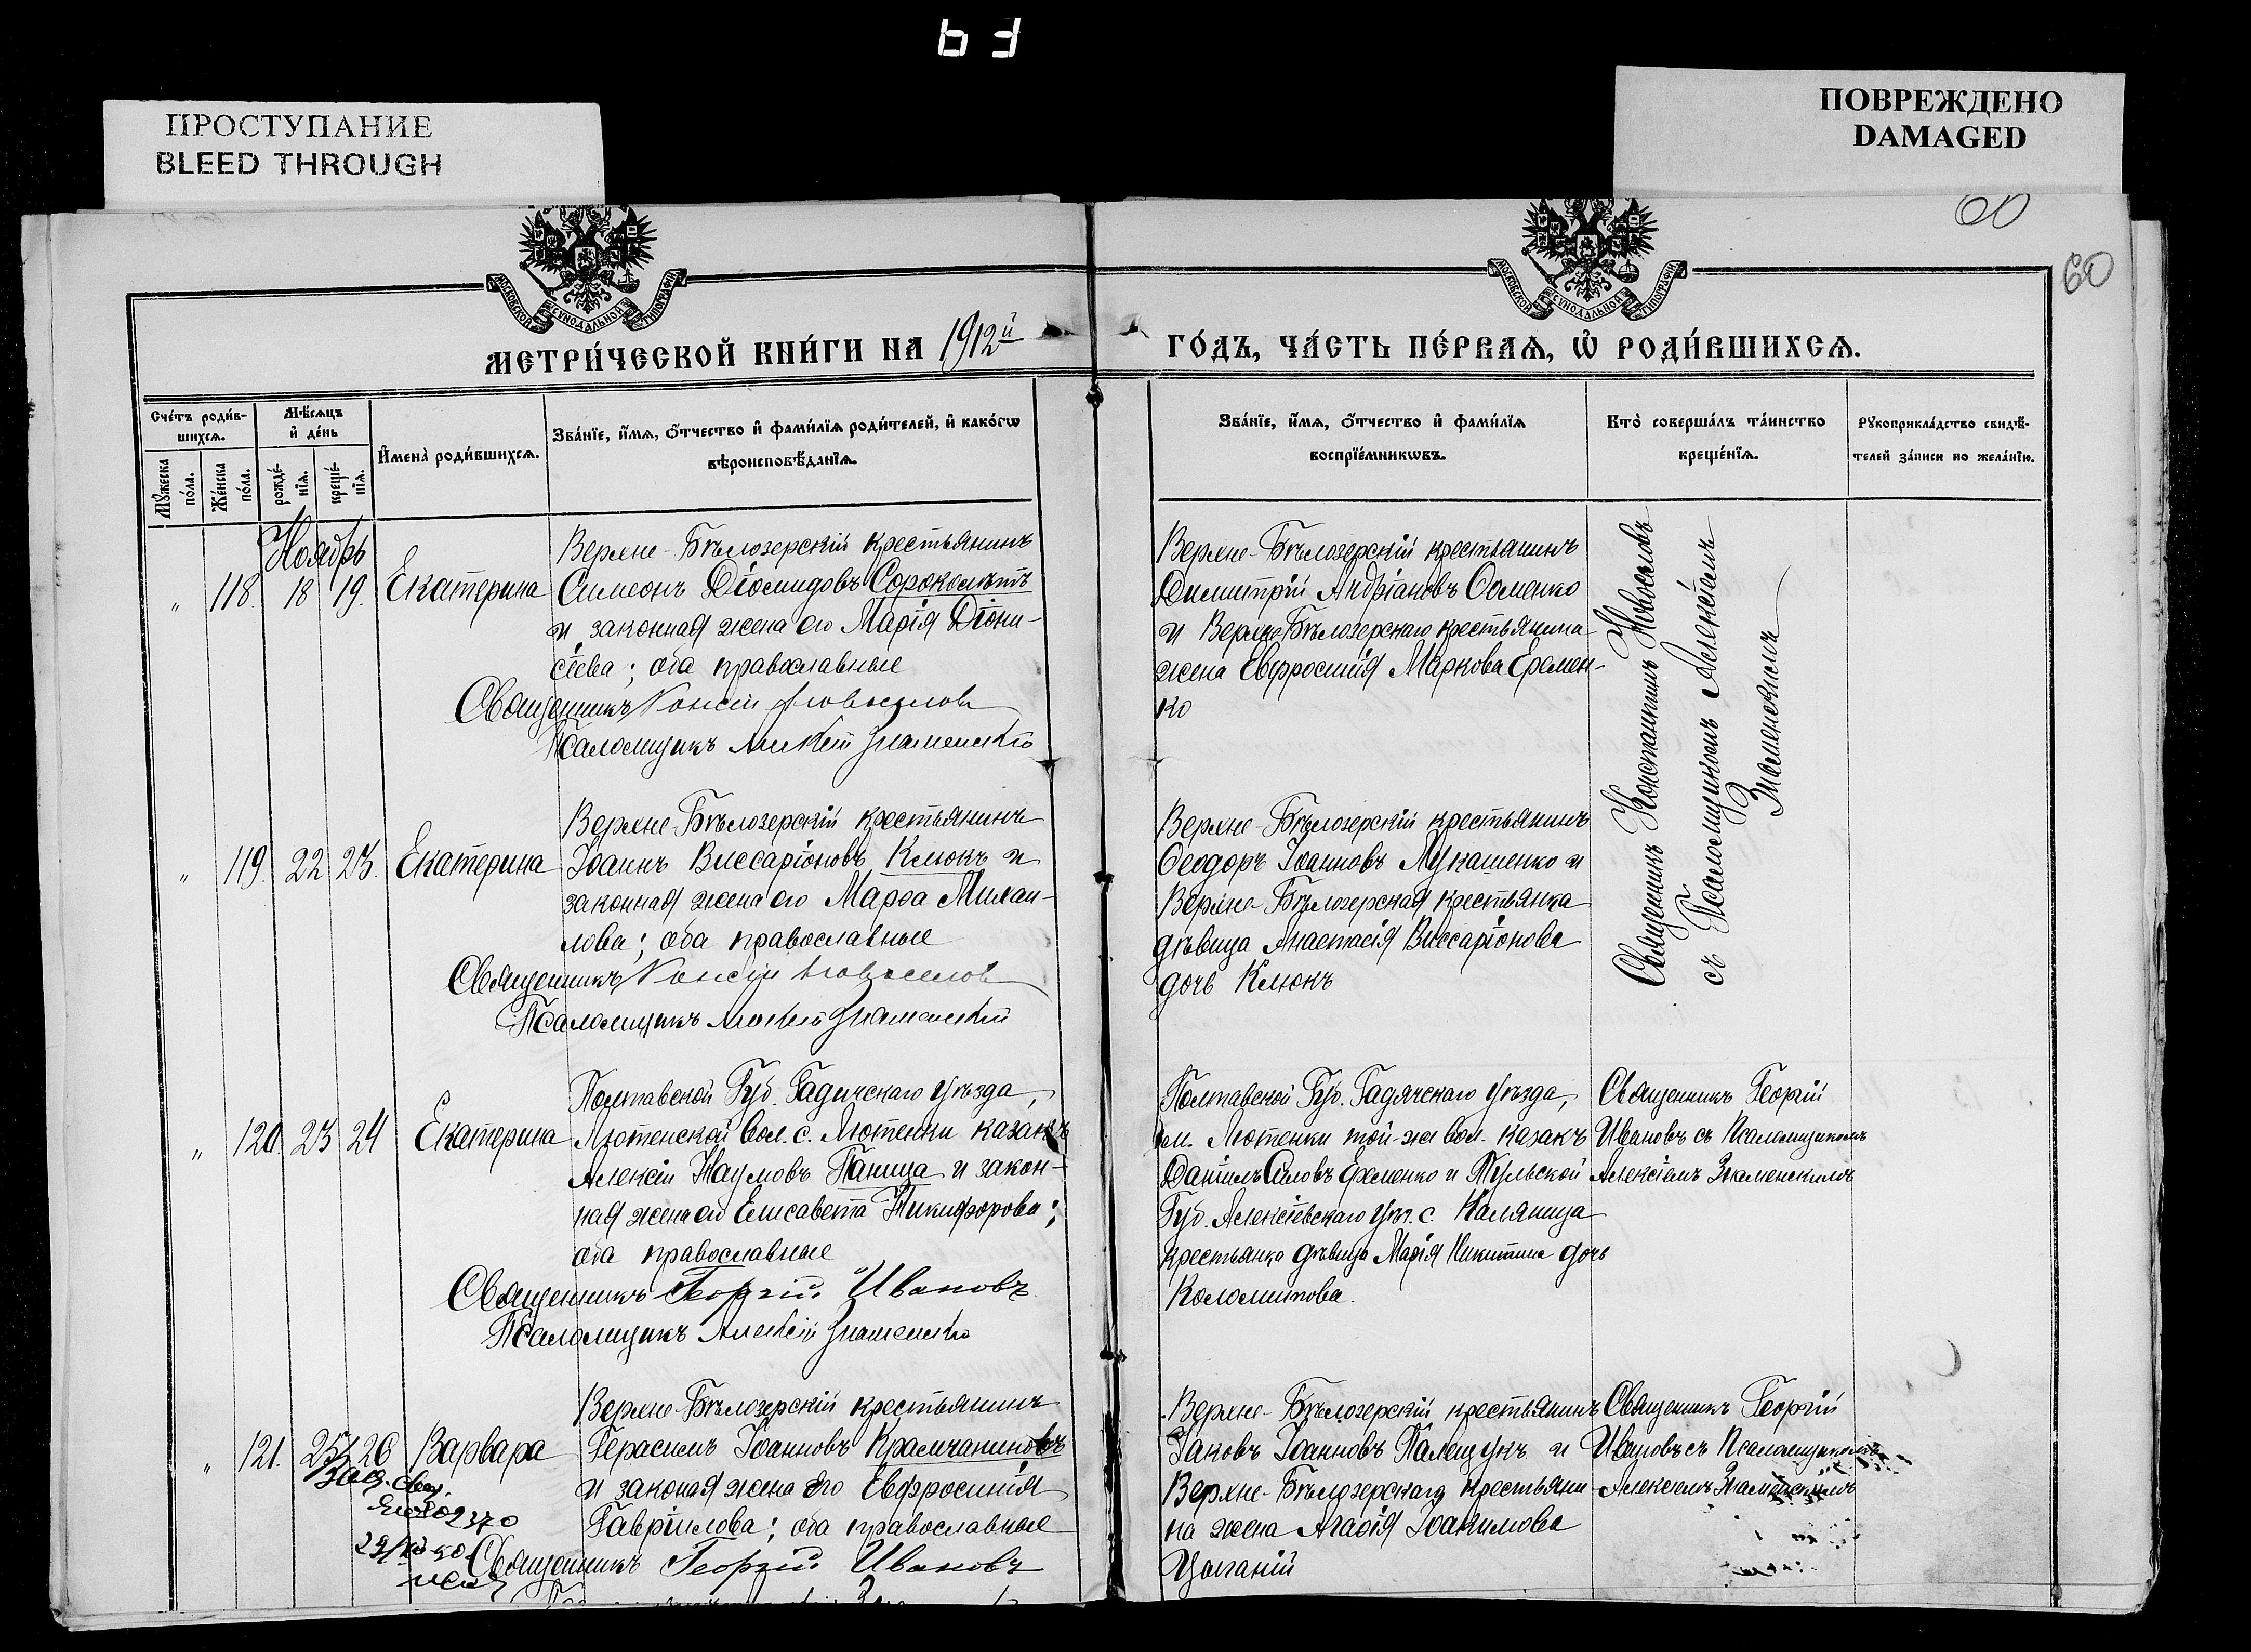 63
ПРОСТУПАНИЕ
BLEED THROUGH
ПОВРЕЖДЕНО
DAMAGED
60
60
МОСКОВСКОЙ СѴНОДАЛЬНОЙ ТИПОГРАФІИ
МОСКОВСКОЙ СѴНОДАЛЬНОЙ ТИПОГРАФІИ
МЕТРИ́ЧЕСКОЙ КНИ́ГИ НА 1912й
ГО́ДЪ, ЧА́СТЬ ПЕ́РВАѦ, Ѡ҆ РОДИ́ВШИХСѦ.
Сче́тъ роди́в-
шихсѧ.
Мѣ́сѧцъ
и҆ де́нь
И҆мена̀ роди́вшихсѧ.
Зва́нїе, и҆́мѧ, ѻ҆́тчество и҆ фами́лїѧ роди́телей, и҆ како́гѡ
вѣроисповѣ́данїѧ.
Мꙋ́жеска
по́ла.
Же́нска
по́ла.
рожде́-
нїѧ.
креще́-
нїѧ.
Зва́нїе, и҆́мѧ, ѻ҆́тчество и҆ фами́лїѧ
воспрїе́мникѡвъ.
Кто̀ соверша́лъ та́инство
креще́нїѧ.
Рꙋкоприкла́дство свидѣ́-
телей за́писи по жела́нїю.
Ноябрь
" 118. 18 19. Екатерина
Верхне-Бѣлозерскій крестьянинъ
Симеонъ Діомидовъ Сорокольтъ
и законная жена его Марія Діони-
сіева; оба православные
Священникъ Консій Новоселов
Псаломщикъ Алексій Знаменскій
Верхне-Бѣлозерскій крестьянинъ
Димитрій Андріановъ
и Верхне-Бѣлозерскаго крестьянина
жена Евфросинія Маркова Еремен-
ко
Священникъ Константинъ Новоселовъ
съ Псаломщикомъ Алексіемъ
Знаменскимъ
" 119. 22 23. Екатерина
Верхне-Бѣлозерскій крестьянинъ
Іоаннъ Виссаріоновъ Клюкъ и
законная жена его Марѳа Михаи-
лова; оба православные
Священникъ Консій Новоселов
Псаломщикъ Алексій Знаменскій
Верхне-Бѣлозерскій крестьянинъ
Ѳеодоръ Іоанновъ Лукашенко и
Верхне-Бѣлозерская крестьянка
дѣвица Анастасія Виссаріонова
дочь Клюкъ
" 120. 23 24 Екатерина
Полтавской Губ. Гадячскаго уѣзда,
Лютенской вол. с. Лютенки казакъ
Алексій Наумовъ Паница и закон-
ная жена его Елисавета Никифорова;
оба православные
Священникъ Георгій Ивановъ
Псаломщикъ Алексій Знаменскій
Полтавской Губ. Гадячскаго уѣзда,
Лютенки той-же вол. казакъ
Даніилъ Еременко и Тульской
Губ. Алексіевскаго уѣз. с.
крестьянка дѣвица Марія Никитина дочь
Священникъ Георгій
Ивановъ съ Псаломщикомъ
Алексіемъ Знаменскимъ
" 121. 25 26 Варвара
Верхне-Бѣлозерскій крестьянинъ
Герасимъ Іоанновъ Крамчаниновъ
и законная жена его Евфросинія
Гавріилова; оба православные
Священникъ Георгій Ивановъ
Верхне-Бѣлозерскій крестьянинъ
Іаковъ Іоанновъ Палащукъ и
Верхне-Бѣлозерскаго крестьяни-
на жена Агаѳія Іоакимова
Цыганій
Священникъ Георгій
Ивановъ съ Псаломщикомъ
Алексіемъ Знаменскимъ